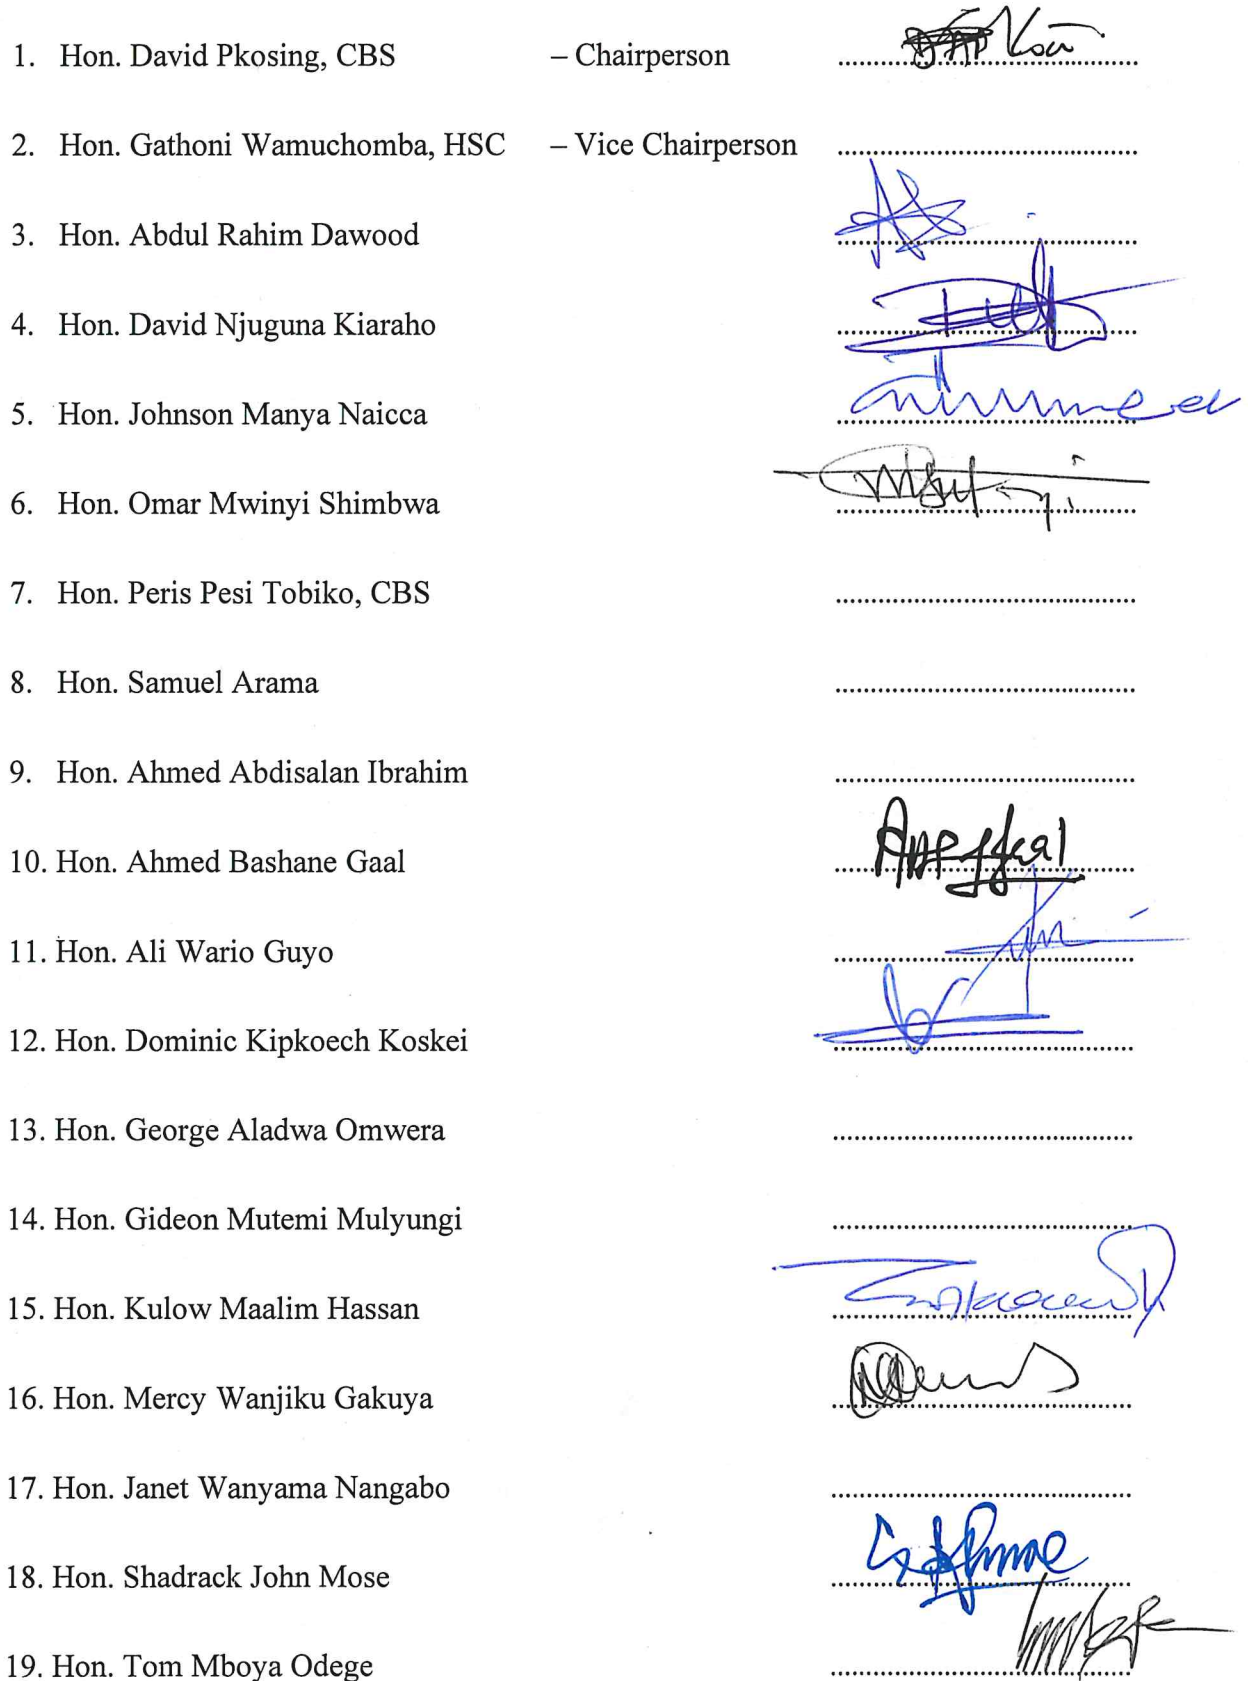 1. Hon. David Pkosing, CBS – Chairperson ..........................................
2. Hon. Gathoni Wamuchomba, HSC – Vice Chairperson ..........................................
3. Hon. Abdul Rahim Dawood ..........................................
4. Hon. David Njuguna Kiaraho ..........................................
5. Hon. Johnson Manya Naicca ..........................................
6. Hon. Omar Mwinyi Shimbwa ..........................................
7. Hon. Peris Pesi Tobiko, CBS ..........................................
8. Hon. Samuel Arama ..........................................
9. Hon. Ahmed Abdisalan Ibrahim ..........................................
10. Hon. Ahmed Bashane Gaal ..........................................
11. Hon. Ali Wario Guyo ..........................................
12. Hon. Dominic Kipkoech Koskei ..........................................
13. Hon. George Aladwa Omwera ..........................................
14. Hon. Gideon Mutemi Mulyungi ..........................................
15. Hon. Kulow Maalim Hassan ..........................................
16. Hon. Mercy Wanjiku Gakuya ..........................................
17. Hon. Janet Wanyama Nangabo ..........................................
18. Hon. Shadrack John Mose ..........................................
19. Hon. Tom Mboya Odege ..........................................